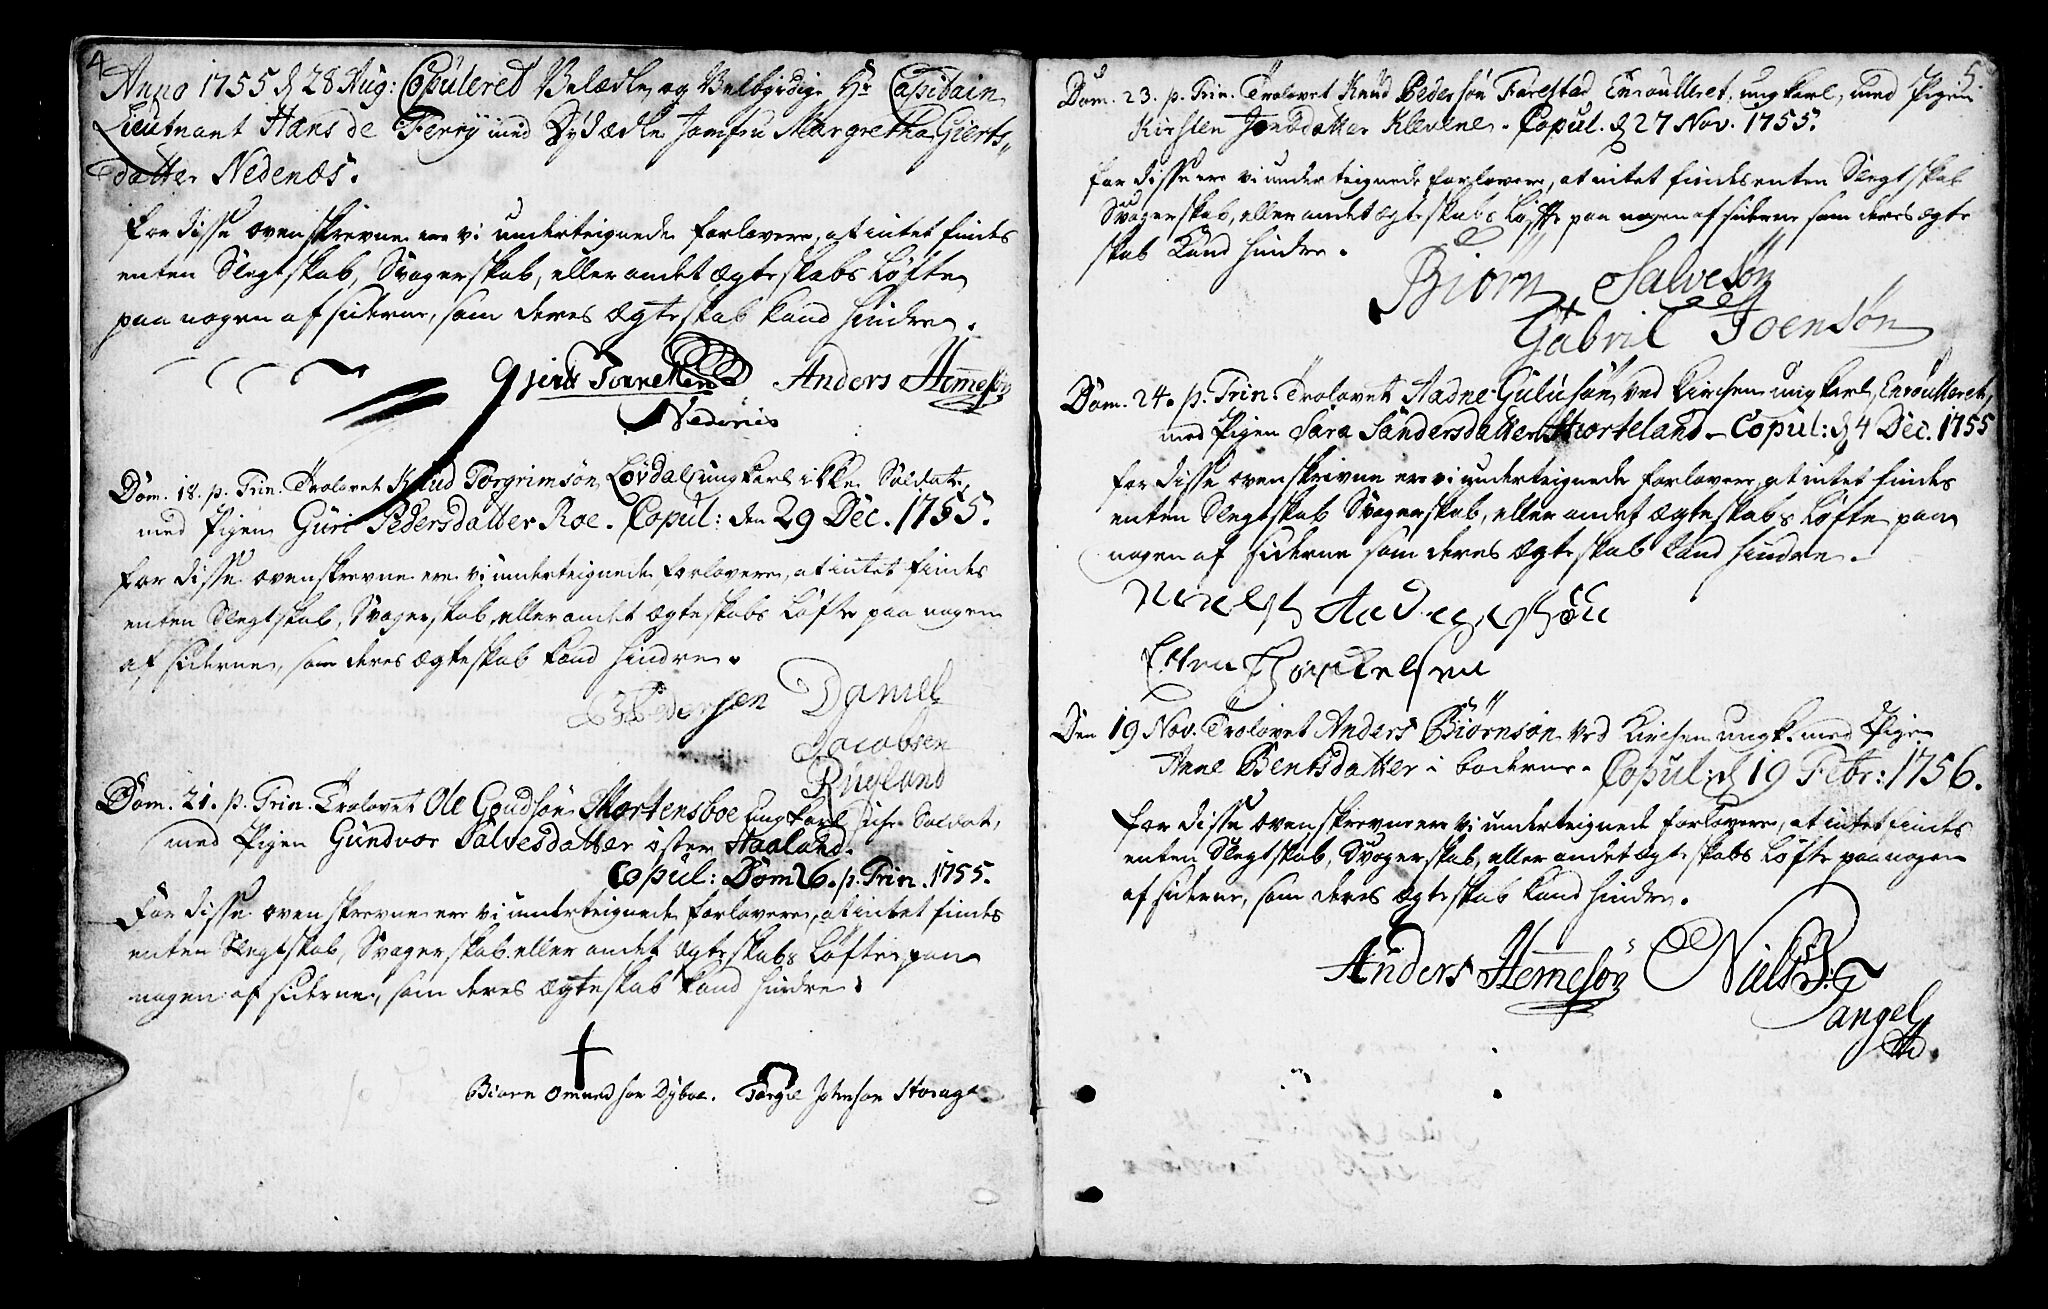 4
Anno 1755 d 28 Aug: Copuleret Velædle og Velbyrdige Hr Capitain
Lieutnant Hans de Ferry med Dydædle Jomfru Margretha Gierts-
datter Nedenæs.
for disse ovenskrevne ere vi underteignede forlovere, at intet findes
enten Slegtskab, Svogerskab, eller andet ægteskabs Løfte
paa nogen af siderne, som deres ægteskab kand hindre.
Gjert Anders Hemesön
Nedenes
Dom. 18. p. Trin. Trolovet Knud Torgrimsøn Løvdal ungkarl ikke Soldat,
med Pigen Guri Pedersdatter Roe. Copul: den 29 Dec. 1755.
for disse ovenskrevne ere vi underteignede forlovere, at intet findes
enten Slegtskab, Svogerskab, eller andet ægteskabs Løfte paa nogen
af siderne, som deres ægteskab kand hindre.
Pedersen Daniel
Jacobsen
Rugland
Dom. 21. p. Trin. Trolovet Ole Gundsøn Mortensboe ungkarl Soldat,
med Pigen Gundvor Salvesdatter øster Haaland.
Copul: Dom 26. p. Trin. 1755.
for disse ovenskrevne ere vi underteignede forlovere, at intet findes
enten Slegtskab, Svogerskab eller andet ægteskabs Løfte paa
nogen af siderne, som deres ægteskab kand hindre.
Biørn Omundsøn Dyboe. Torgie Johnson
5
Dom. 23. p. Trin. Trolovet Knud Pedersøn Farestad Enroulleret ungkarl, med Pigen
Kirsten Jensdatter Klevene. Copul. d 27 Nov. 1755.
for disse ere vi underteignede forlovere, at intet findes enten Slegtskab
Svogerskab, eller andet ægteskabs Løffte paa nogen af siderne som deres ægte
skab kand hindre.
Biörn Salvesön
Gabril Joensøn
Dom. 24. p. Trin. Trolovet Aadne Gulusøn ved Kirchen ungkarl, Enroulleret,
med Pigen Sara Sandersdatter Hiorteland. Copul: d 4 Dec. 1755
for disse ovenskrivne ere vi underteignede forlovere, at intet findes
enten Slegtskab Svogerskab, eller andet ægteskabs Løfte paa
nogen af siderne som deres ægteskab kand hindre.
Den 19 Nov. Trolovet Anders Biørnsøn ved Kirchen ungk. med Pigen
Anne Bentsdatter i boderne. Copul: d 19 Febr: 1756.
for disse ovenskrevne ere vi underteignede forlovere, at intet findes
enten Slegtskab, Svogerskab, eller andet ægteskabs Løfte paa nogen
af siderne, som deres ægteskab kand hindre.
Anders Hemesön Niels
Tangel